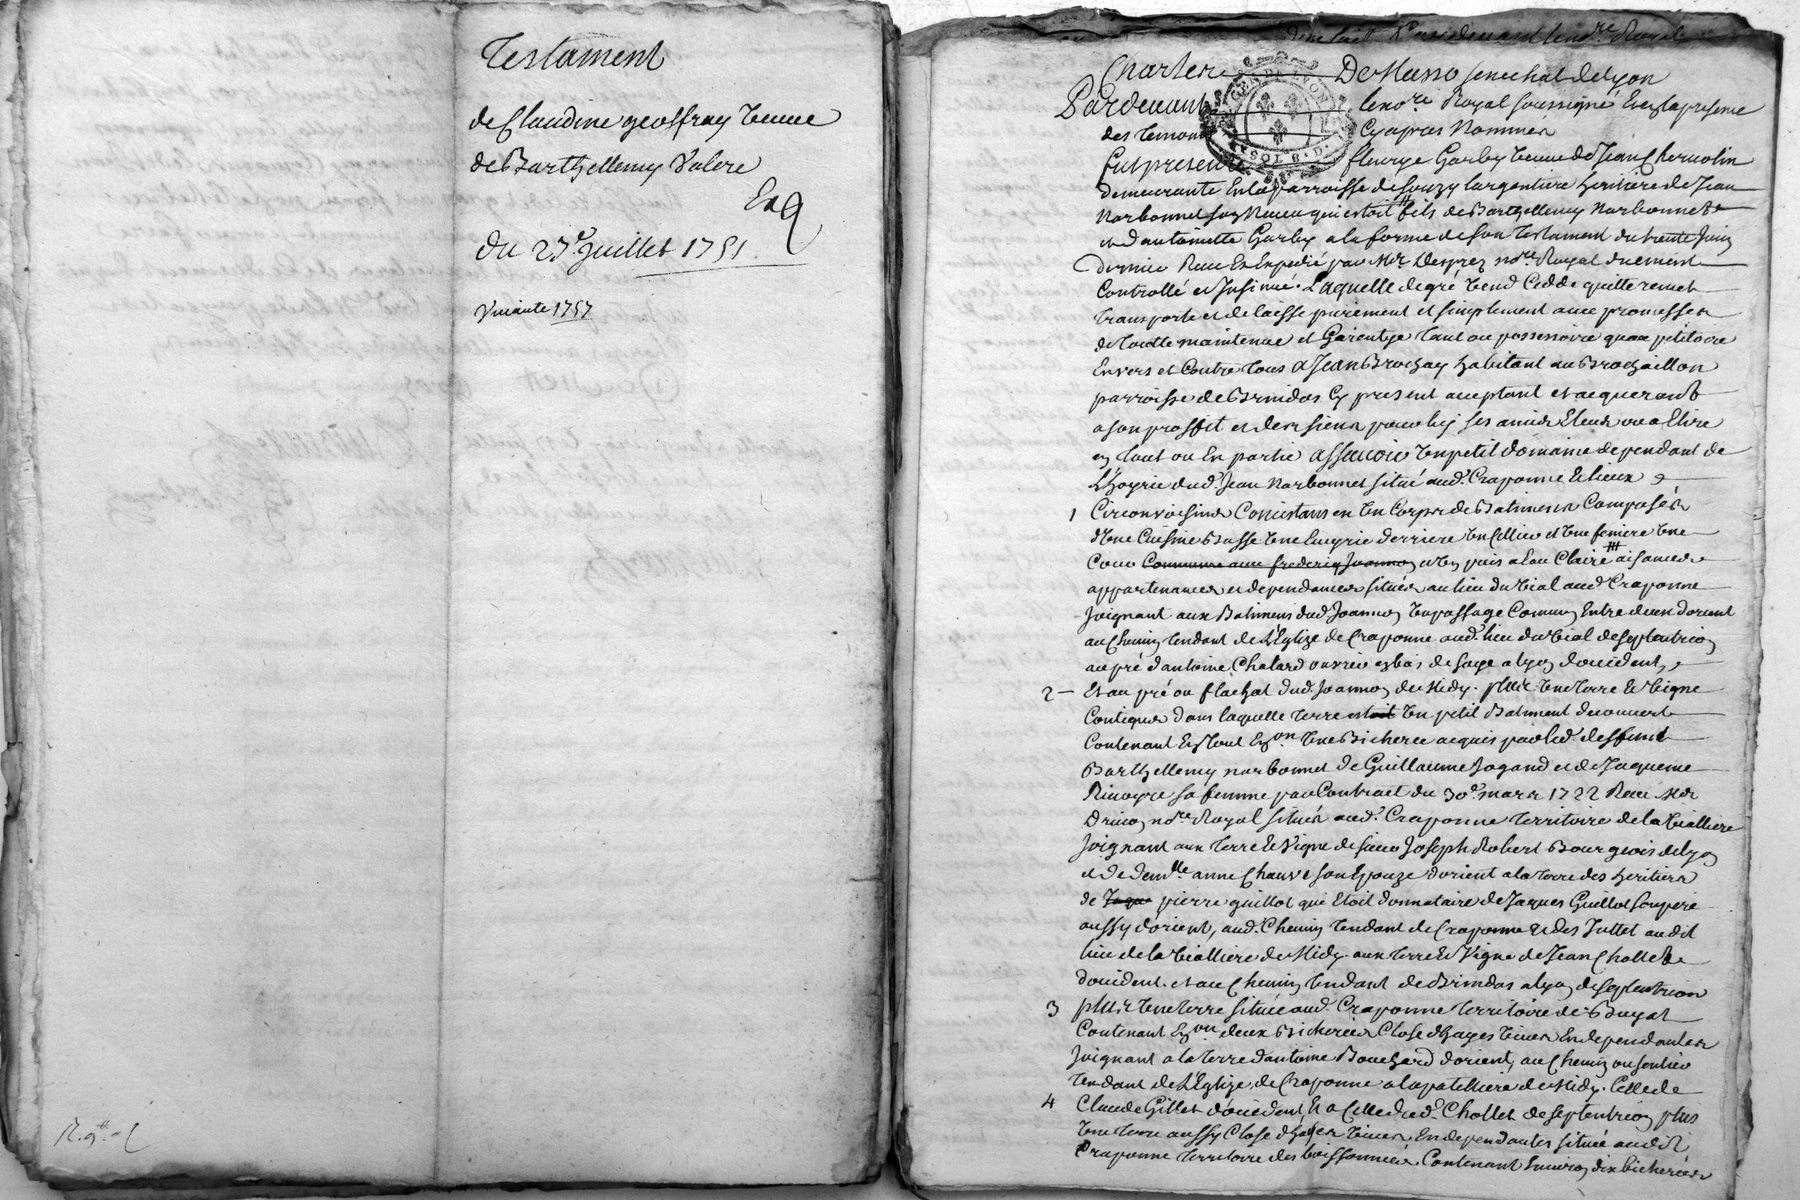 Testament
de Claudine geoffray veuve
de Barthellemy Valere
Exq
du 23e Juillet 1751
Vacante 1757
R. 9tt
Charles De Masso senechal de lyon
Pardevant le nore Royal soussigné En la presence
des temoins Cy apres Nommés
fut presente fleurye Garby veuve de Jean Chermolin
demeurante En la parroisse de souzy largentiere heritiere de Jean
Narbonnet son Neveu qui estoit fils de Barthellemy Narbonnet
et dantoinette Garby a la forme de son testament du trente Juin
dernier Receu Et Expedié par Me Desprez nore Royal duement
Controllé et Insinué. Laquelle de gré vend Cedde quitte remet
transporte et delaisse purement et simplement avec promesses
de toutte maintenue et Garentye tant au possessoire quau petitoire
Envers et Contre tous a Jean Brochay habitant au Brochaillon
parroisse de Brindas Cy present acceptant et acquerant
a son proffit et des siens pour luy ses amis Eleus ou a Elire
en tout ou En partie assavoir un petit domaine dependant de
Lhoyrie dud. Jean Narbonnet situé aud. Craponne Et lieux
1 Circonvoisins Consistans en un Corps de Batimens Composés
dune Cuisine Basse une ecurie derriere un Cellier et une feniere une
Cour Commune avec frederiq Joannon et un puis a Eau Claire aisances
appartenances et dependances situés au lieu du vial aud. Craponne
Joignant aux Batimens dud. Joannon un passage Commun Entre deux dorient
au Chemin tendant de LEglize de Craponne aud. lieu du vial de septentrion
au pré dantoine Chatard ouvrier en bas de soye a lyon doccident,
2 - Et au pré ou flachat dud. Joannon de Midy. plus une terre Et vigne
Contigues dans laquelle terre estoit un petit Batiment decouvert
Contenant En tout Enon une Bicherée acquis par led. deffunt
Barthellemy narbonnet de Guillaume Jogand et de Jaqueme
Rivoyre sa femme par Contract du 30e mars 1722 Receu Me
Drivon nore Royal situés aud. Craponne territoire de la vialliere
Joignant aux terre Et Vigne de sieur Joseph Robert Bourgeois de lyon
et de demlle anne Chauve son Epouze dorient a la terre des heritiers
de Jaque pierre guillot qui Etoit donnataire de Jaques Guillot son pere
aussy dorient, aud. Chemin tendant de Craponne Et des Jullet au dit
lieu de la vialliere de Midy aux terre Et Vigne de Jean Chollet
doccident. et au Chemin tendant de Brindas a lyon de septentrion
3 plus une terre située aud. Craponne territoire de Buyat
Contenant Enon deux Bicherées Close dhayes vives En dependantes
Joignant a la terre dantoine Bouchard dorient, au Chemin ou sentier
tendant de LEglize de Craponne a la patelliere de Midy. Celle de
4 Claude Gillet doccident Et a Celle dud. Chollet de septentrion plus
une terre aussy Close dhayes vives En dependantes située audit
Craponne territoire des boissonnieres Contenant Environ dix bicherées